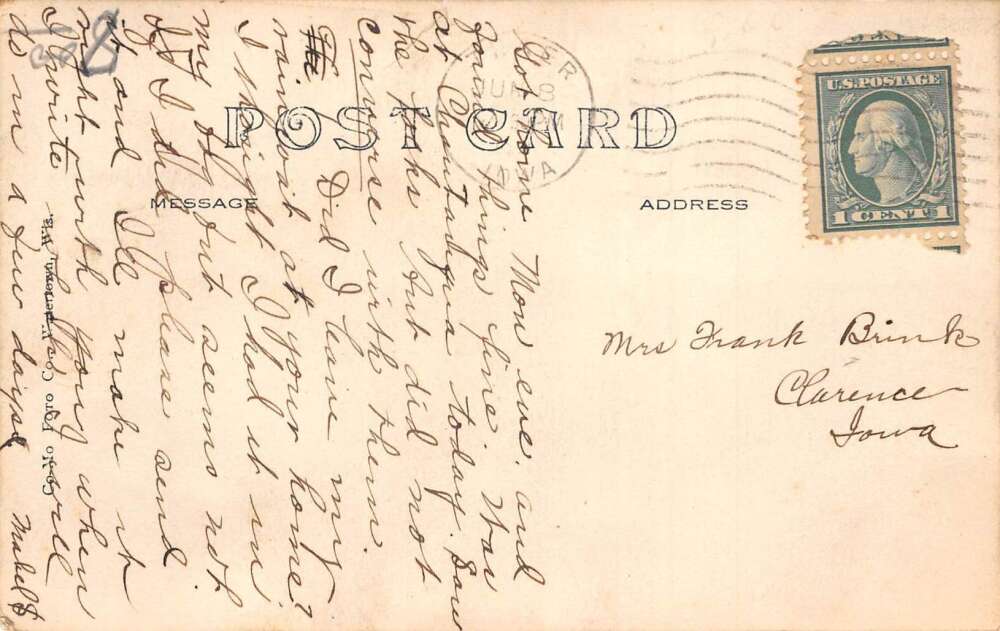 POST CARD
MESSAGE
ADDRESS
U.S. POSTAGE
1 CENT 1
JUN 8
IOWA
Mrs Frank Brink
Clarence
Iowa
Got home Mon eve. and
found things fine. Was
at Chautauqua today. Saw
the folks but did not
converse with them.
Did I leave my
raincoat at your home?
I thought I had it in
my bag but seems not.
If I did please send
it and I'll make it
right with you when
I write. Will
do in a few days.
Mabel
Co-Mo Foto Co. Watertown, Wis.